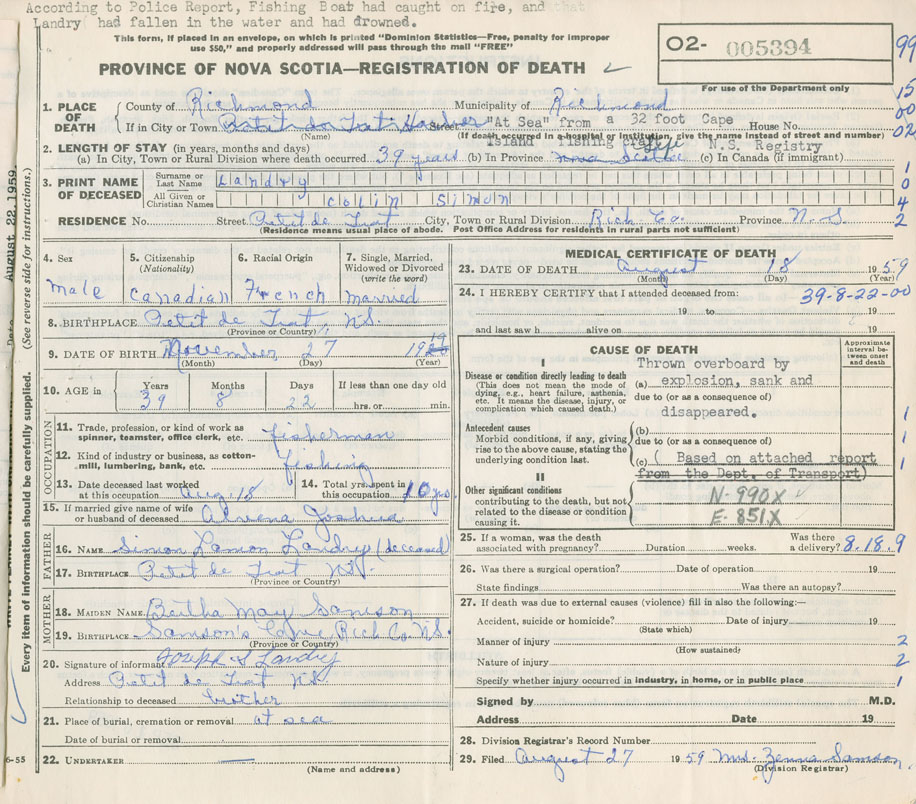 According to Police Report, Fishing Boat had caught on fire, and that
Landry had fallen in the water and had drowned.
This form, if placed in an envelope, on which is printed "Dominion Statistics—Free, penalty for improper
use $50," and properly addressed will pass through the mail "FREE"
O2- 005394
99
PROVINCE OF NOVA SCOTIA—REGISTRATION OF DEATH
For use of the Department only
15
00
02
1. PLACE OF DEATH
County of Richmond Municipality of Richmond
If in City or Town Petit de Grat Harbor Street "At Sea" from a 32 foot Cape House No.
(Name) (If death occurred in a hospital or institution, give the name instead of street and number)
Island fishing craft N.S. Registry
2. LENGTH OF STAY (in years, months and days)
(a) In City, Town or Rural Division where death occurred 39 years (b) In Province Nova Scotia Life (c) In Canada (if immigrant)
3. PRINT NAME OF DECEASED
Surname or Last Name Landry
All Given or Christian Names Colin Simon
1
0
4
2
RESIDENCE No. Street Petit de Grat City, Town or Rural Division Rich Co. Province N.S.
(Residence means usual place of abode. Post Office Address for residents in rural parts not sufficient)
4. Sex Male
5. Citizenship (Nationality) Canadian
6. Racial Origin French
7. Single, Married, Widowed or Divorced (write the word) Married
8. BIRTHPLACE Petit de Grat, N.S.
(Province or Country)
9. DATE OF BIRTH November 27 19
(Month) (Day) (Year)
10. AGE in Years Months Days If less than one day old
39 8 22 hrs. or min.
OCCUPATION
11. Trade, profession, or kind of work as spinner, teamster, office clerk, etc. fisherman
12. Kind of industry or business, as cotton-mill, lumbering, bank, etc. fishing
13. Date deceased last worked at this occupation Aug. 18
14. Total yrs. spent in this occupation 10 yrs
15. If married give name of wife or husband of deceased Alvena Joshua
FATHER
16. NAME Simon Lamon Landry (deceased)
17. BIRTHPLACE Petit de Grat N.S.
(Province or Country)
MOTHER
18. MAIDEN NAME Bertha May Samson
19. BIRTHPLACE Samson's Cove Rich Co. N.S.
(Province or Country)
20. Signature of informant Joseph S Landry
Address Petit de Grat N.S.
Relationship to deceased brother
21. Place of burial, cremation or removal at sea
Date of burial or removal
22. UNDERTAKER
(Name and address)
6-55
Every item of information should be carefully supplied. (See reverse side for instructions.)
August 22, 1959
MEDICAL CERTIFICATE OF DEATH
23. DATE OF DEATH August 18 1959
(Month) (Day) (Year)
24. I HEREBY CERTIFY that I attended deceased from: 39-8-22-00
19 to 19
and last saw h alive on 19
CAUSE OF DEATH
Approximate interval between onset and death
I
Disease or condition directly leading to death
(This does not mean the mode of dying, e.g., heart failure, asthenia, etc. It means the disease, injury, or complication which caused death.)
Thrown overboard by
(a) explosion, sank and
due to (or as a consequence of)
disappeared.
Antecedent causes
Morbid conditions, if any, giving rise to the above cause, stating the underlying condition last.
(b)
due to (or as a consequence of)
(c) ( Based on attached report
from the Dept. of Transport)
II
Other significant conditions contributing to the death, but not related to the disease or condition causing it.
N-990X
E-851X
1
1
1
25. If a woman, was the death associated with pregnancy? Duration weeks. Was there a delivery? 8.18.9
26. Was there a surgical operation? Date of operation 19
State findings Was there an autopsy?
27. If death was due to external causes (violence) fill in also the following:—
Accident, suicide or homicide? Date of injury 19
(State which)
Manner of injury 2
(How sustained)
Nature of injury 2
Specify whether injury occurred in industry, in home, or in public place 1
Signed by M.D.
Address Date 19
28. Division Registrar's Record Number
29. Filed August 27 1959 Mrs. Samson
(Division Registrar)